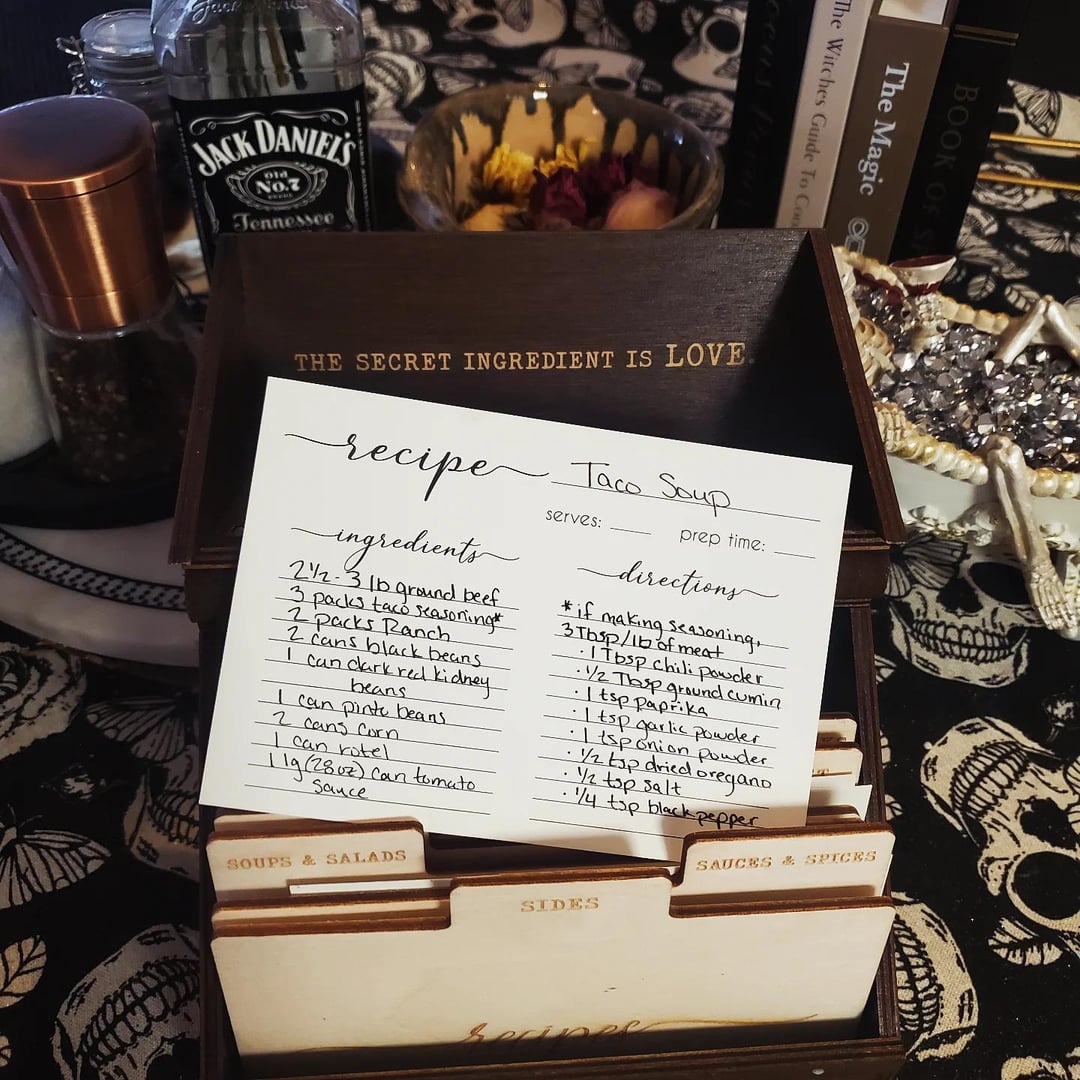 JACK DANIEL'S
OLD
No.7
BRAND
Tennessee
The Witches Guide To
The Magic
BOOK OF
THE SECRET INGREDIENT IS LOVE
recipe Taco Soup
serves: prep time:
ingredients
2 1/2 - 3 lb ground beef
3 packs taco seasoning*
2 packs Ranch
2 cans black beans
1 can dark red kidney
beans
1 can pinto beans
2 cans corn
1 can rotel
1 lg (28oz) can tomato
sauce
directions
* if making seasoning,
3 Tbsp/lb of meat
· 1 Tbsp chili powder
· 1/2 Tbsp ground cumin
· 1 tsp paprika
· 1 tsp garlic powder
· 1 tsp onion powder
· 1/2 tsp dried oregano
· 1/2 tsp salt
· 1/4 tsp black pepper
SOUPS & SALADS
SAUCES & SPICES
SIDES
recipes